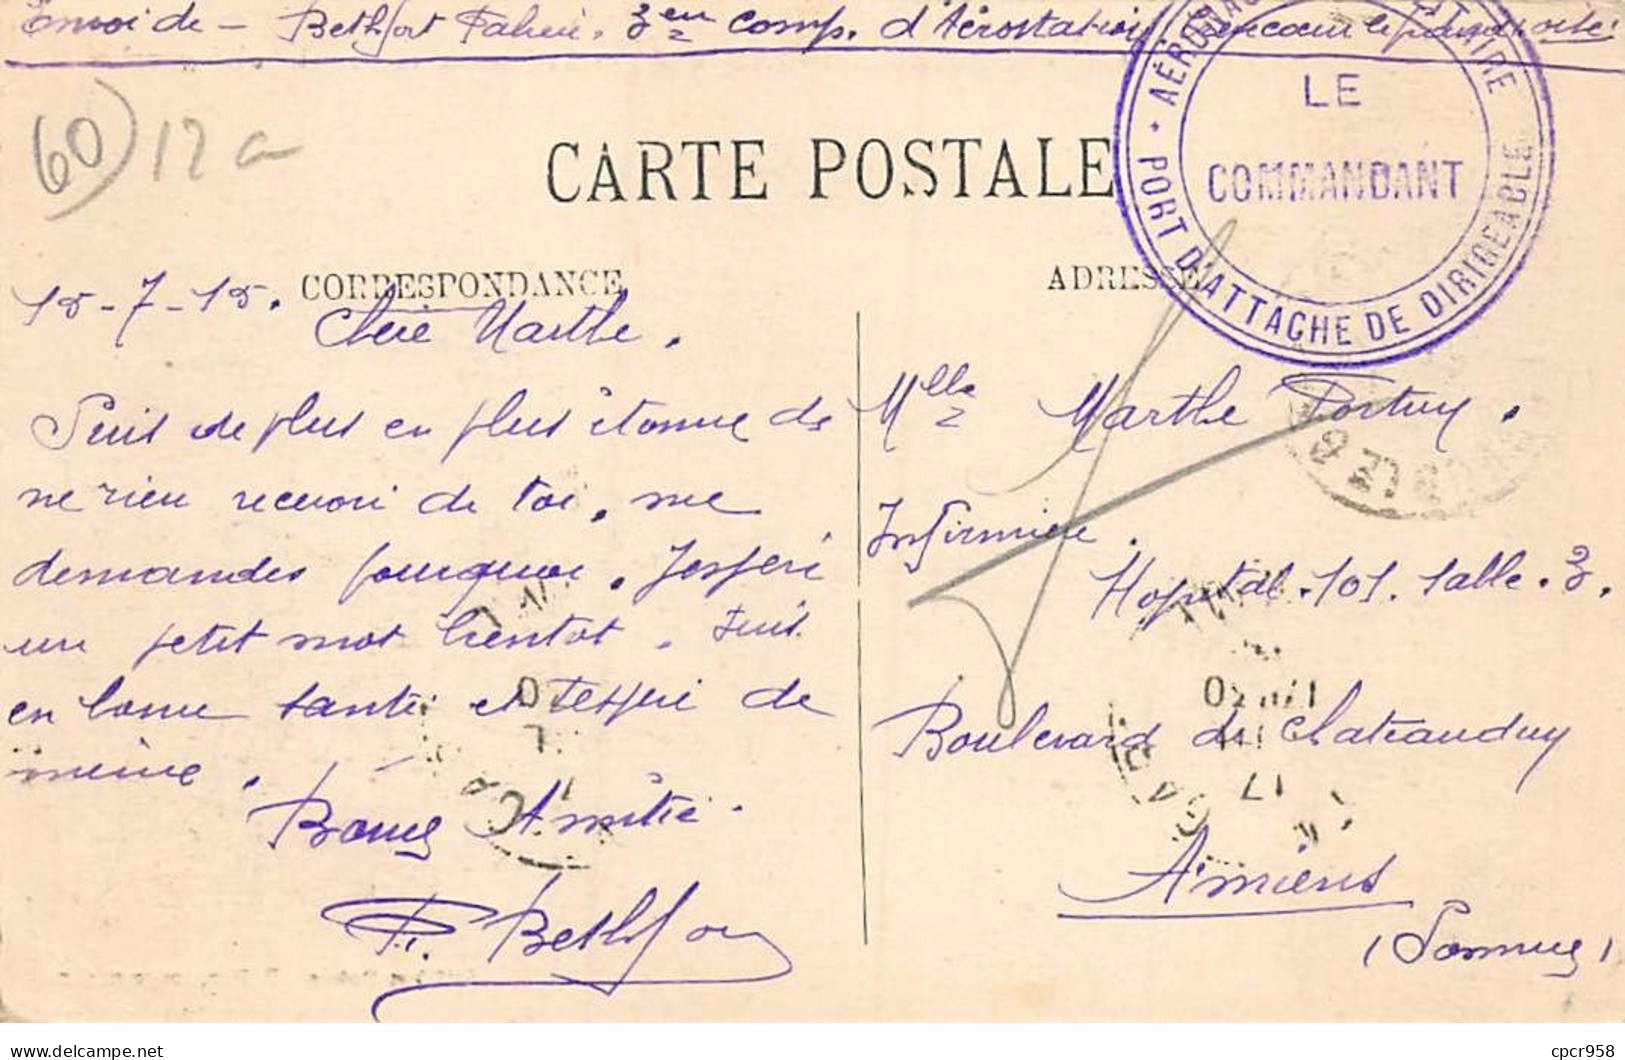 Envoi de - Bethfort 3em comp. d'Aérostation
LE
COMMANDANT
PORT D'ATTACHE DE DIRIGEABLE
60) 12 a
CARTE POSTALE
CORRESPONDANCE
ADRESSE
15-7-15.
Chère Marthe.
Suis de plus en plus étonné de
ne rien recevoir de toi. me
demandes pourquoi. J'espère
un petit mot bientot. Suis
en bonne santé et t'espère de
même.
Bonne Amitié.
P. Bethfort
Mlle Marthe
Infirmière.
Hopital. 101. Salle. 3.
Boulevard de Chateauduy
Amiens
(Somme)
cpcr958